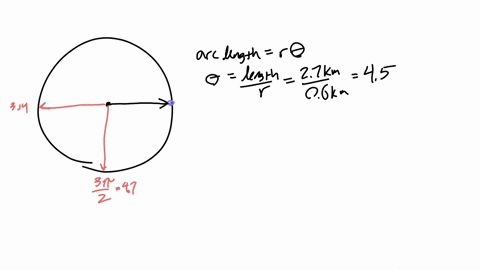 arc length = r θ
θ = length / r = 2.7 km / 0.6 km = 4.5
3.14
3π / 2 = 4.7